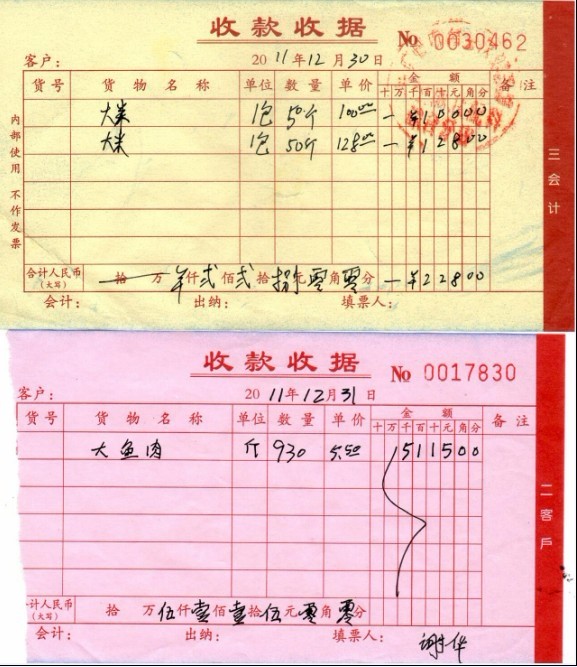 收款收据 No 0030462
客户： 2011年12月30日
货号 货物名称 单位 数量 单价 金额 备注
十万千百十元角分
大米 1包 50斤 100.00 ¥10000
大米 1包 50斤 128.00 ¥12800
内部使用 不作发票
三会计
合计人民币(大写) 拾 万 ¥ 贰佰贰拾捌元零角零分 ¥22800
会计： 出纳： 填票人：
收款收据 No 0017830
客户： 2011年12月31日
货号 货物名称 单位 数量 单价 金额 备注
十万千百十元角分
大鱼肉 斤 930 5.50 511500
二客户
计人民币(大写) 拾 万伍仟壹佰壹拾伍元零角零分
会计： 出纳： 填票人：
谢华